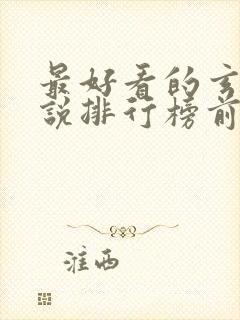 最好看的玄
说排行榜前
淮西